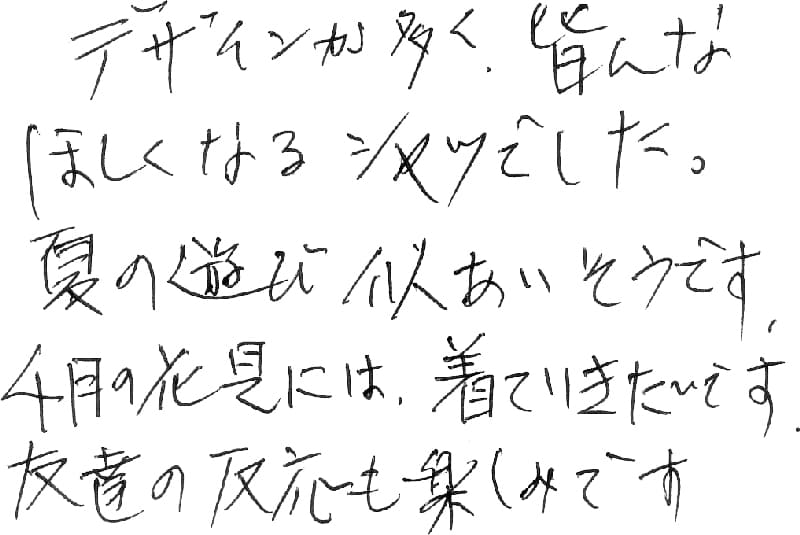 デザインが多く、皆んな
ほしくなるシャツでした。
夏の遊び似あいそうです、
4月の花見には、着ていきたいです。
友達の反応も楽しみです